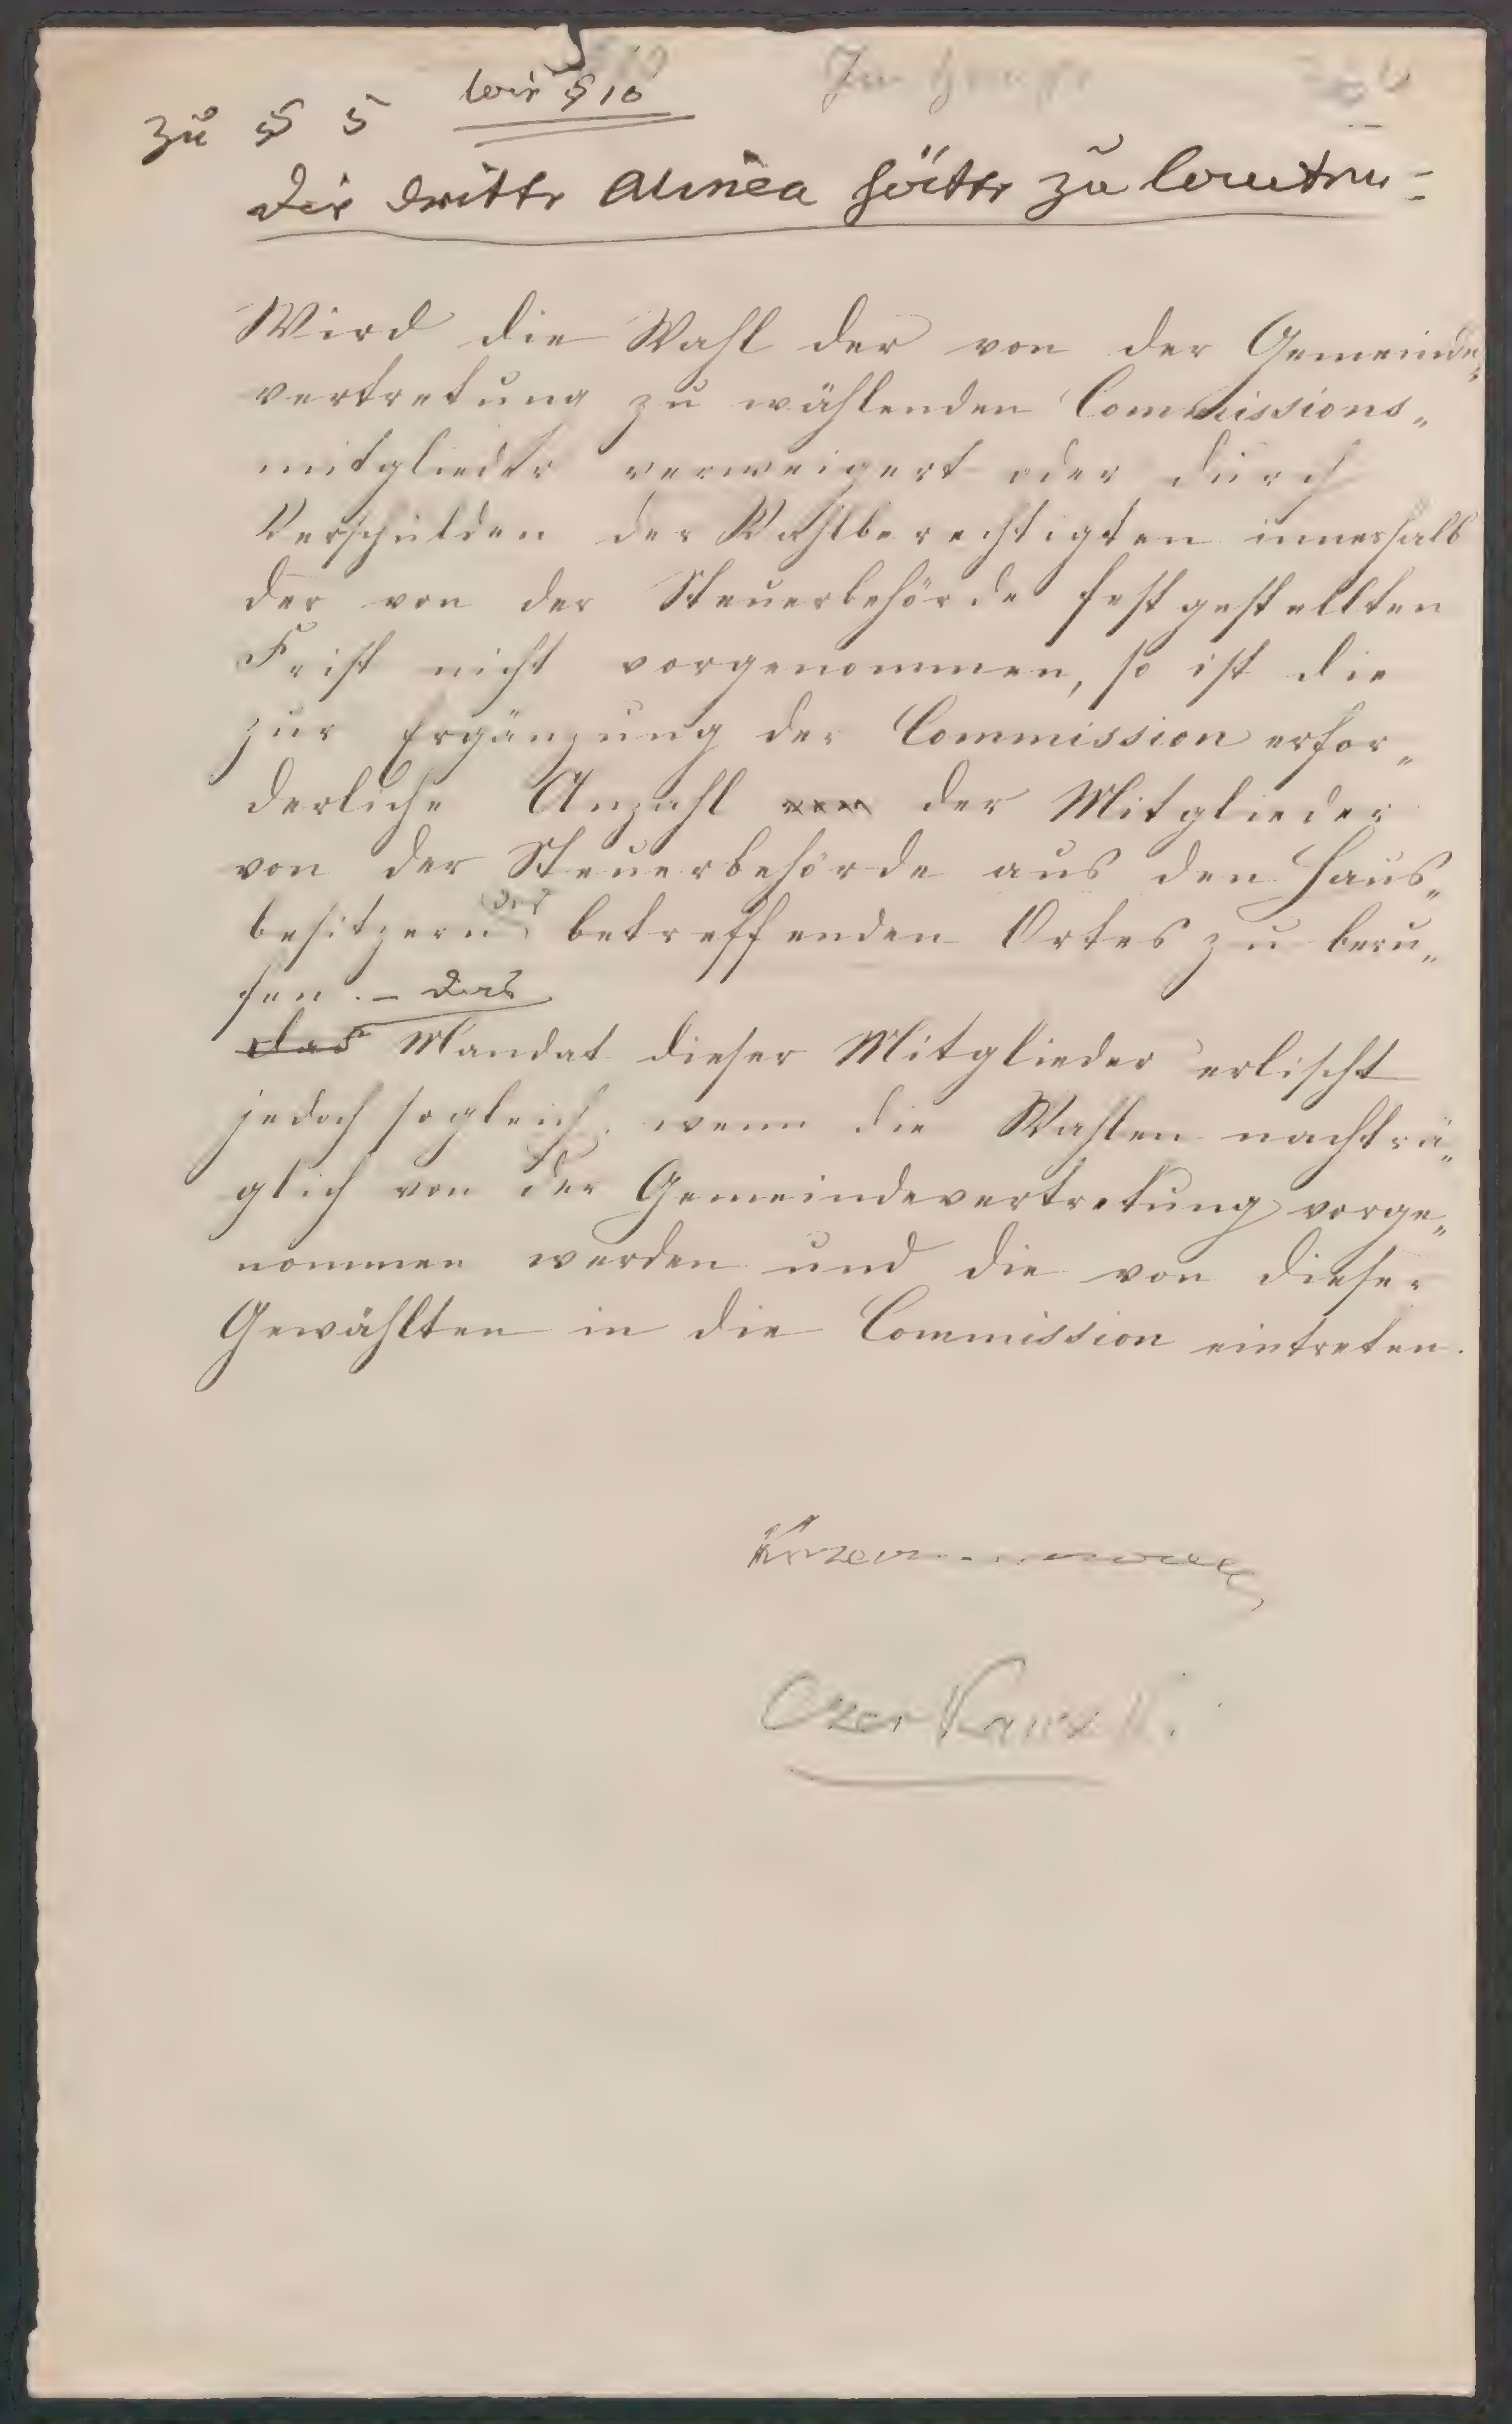 zu § 5 bei § 10
Die dritte Alinea hätte zu lauten:
Wird die Wahl der von der Gemeinde„
vertretung zu wählenden Commissions„
mitglieder verweigert oder durch
Verschulden der Wahlberechtigten innerhalb
der von der Steuerbehörde festgestellten
Frist nicht vorgenommen, so ist die
zur Ergänzung der Commission erfor„
derliche Anzahl der Mitglieder
von der Steuerbehörde aus den Haus„
besitzern des betreffenden Ortes zu beru„
fen. – das
das Mandat dieser Mitglieder erlischt
jedoch sogleich, wenn die Wahlen nachträ„
glich von der Gemeindevertretung vorge„
nommen werden und die von dieser
Gewählten in die Commission eintreten.